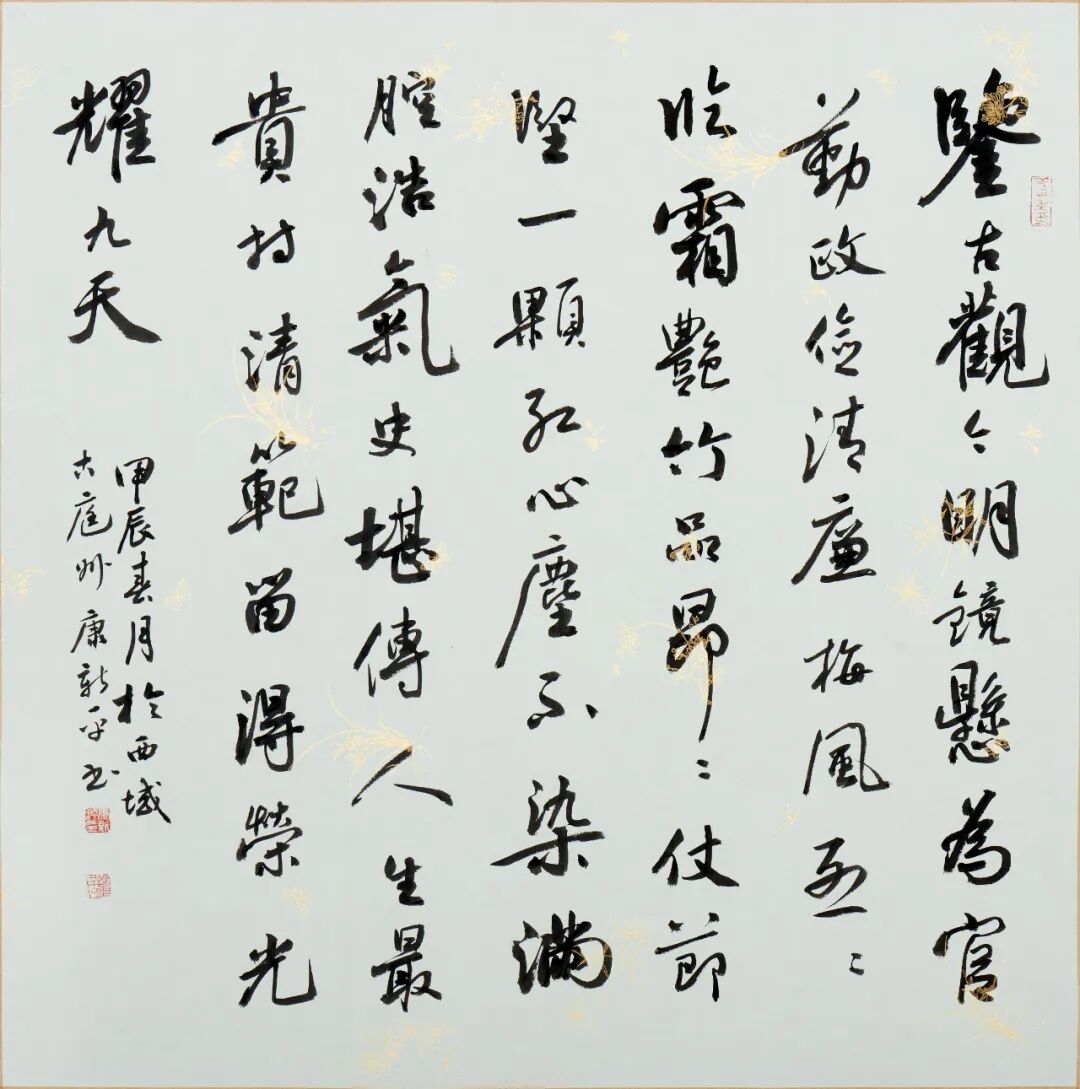 鑒古觀今明鏡懸為官
勤政儉清廉梅風烈〻
臨霜艷竹品昂〻仗節
堅一顆紅心塵不染滿
腔浩氣史堪傳人生最
貴持清範留得榮光
耀九天
甲辰春月於西域
古庭州康新平书